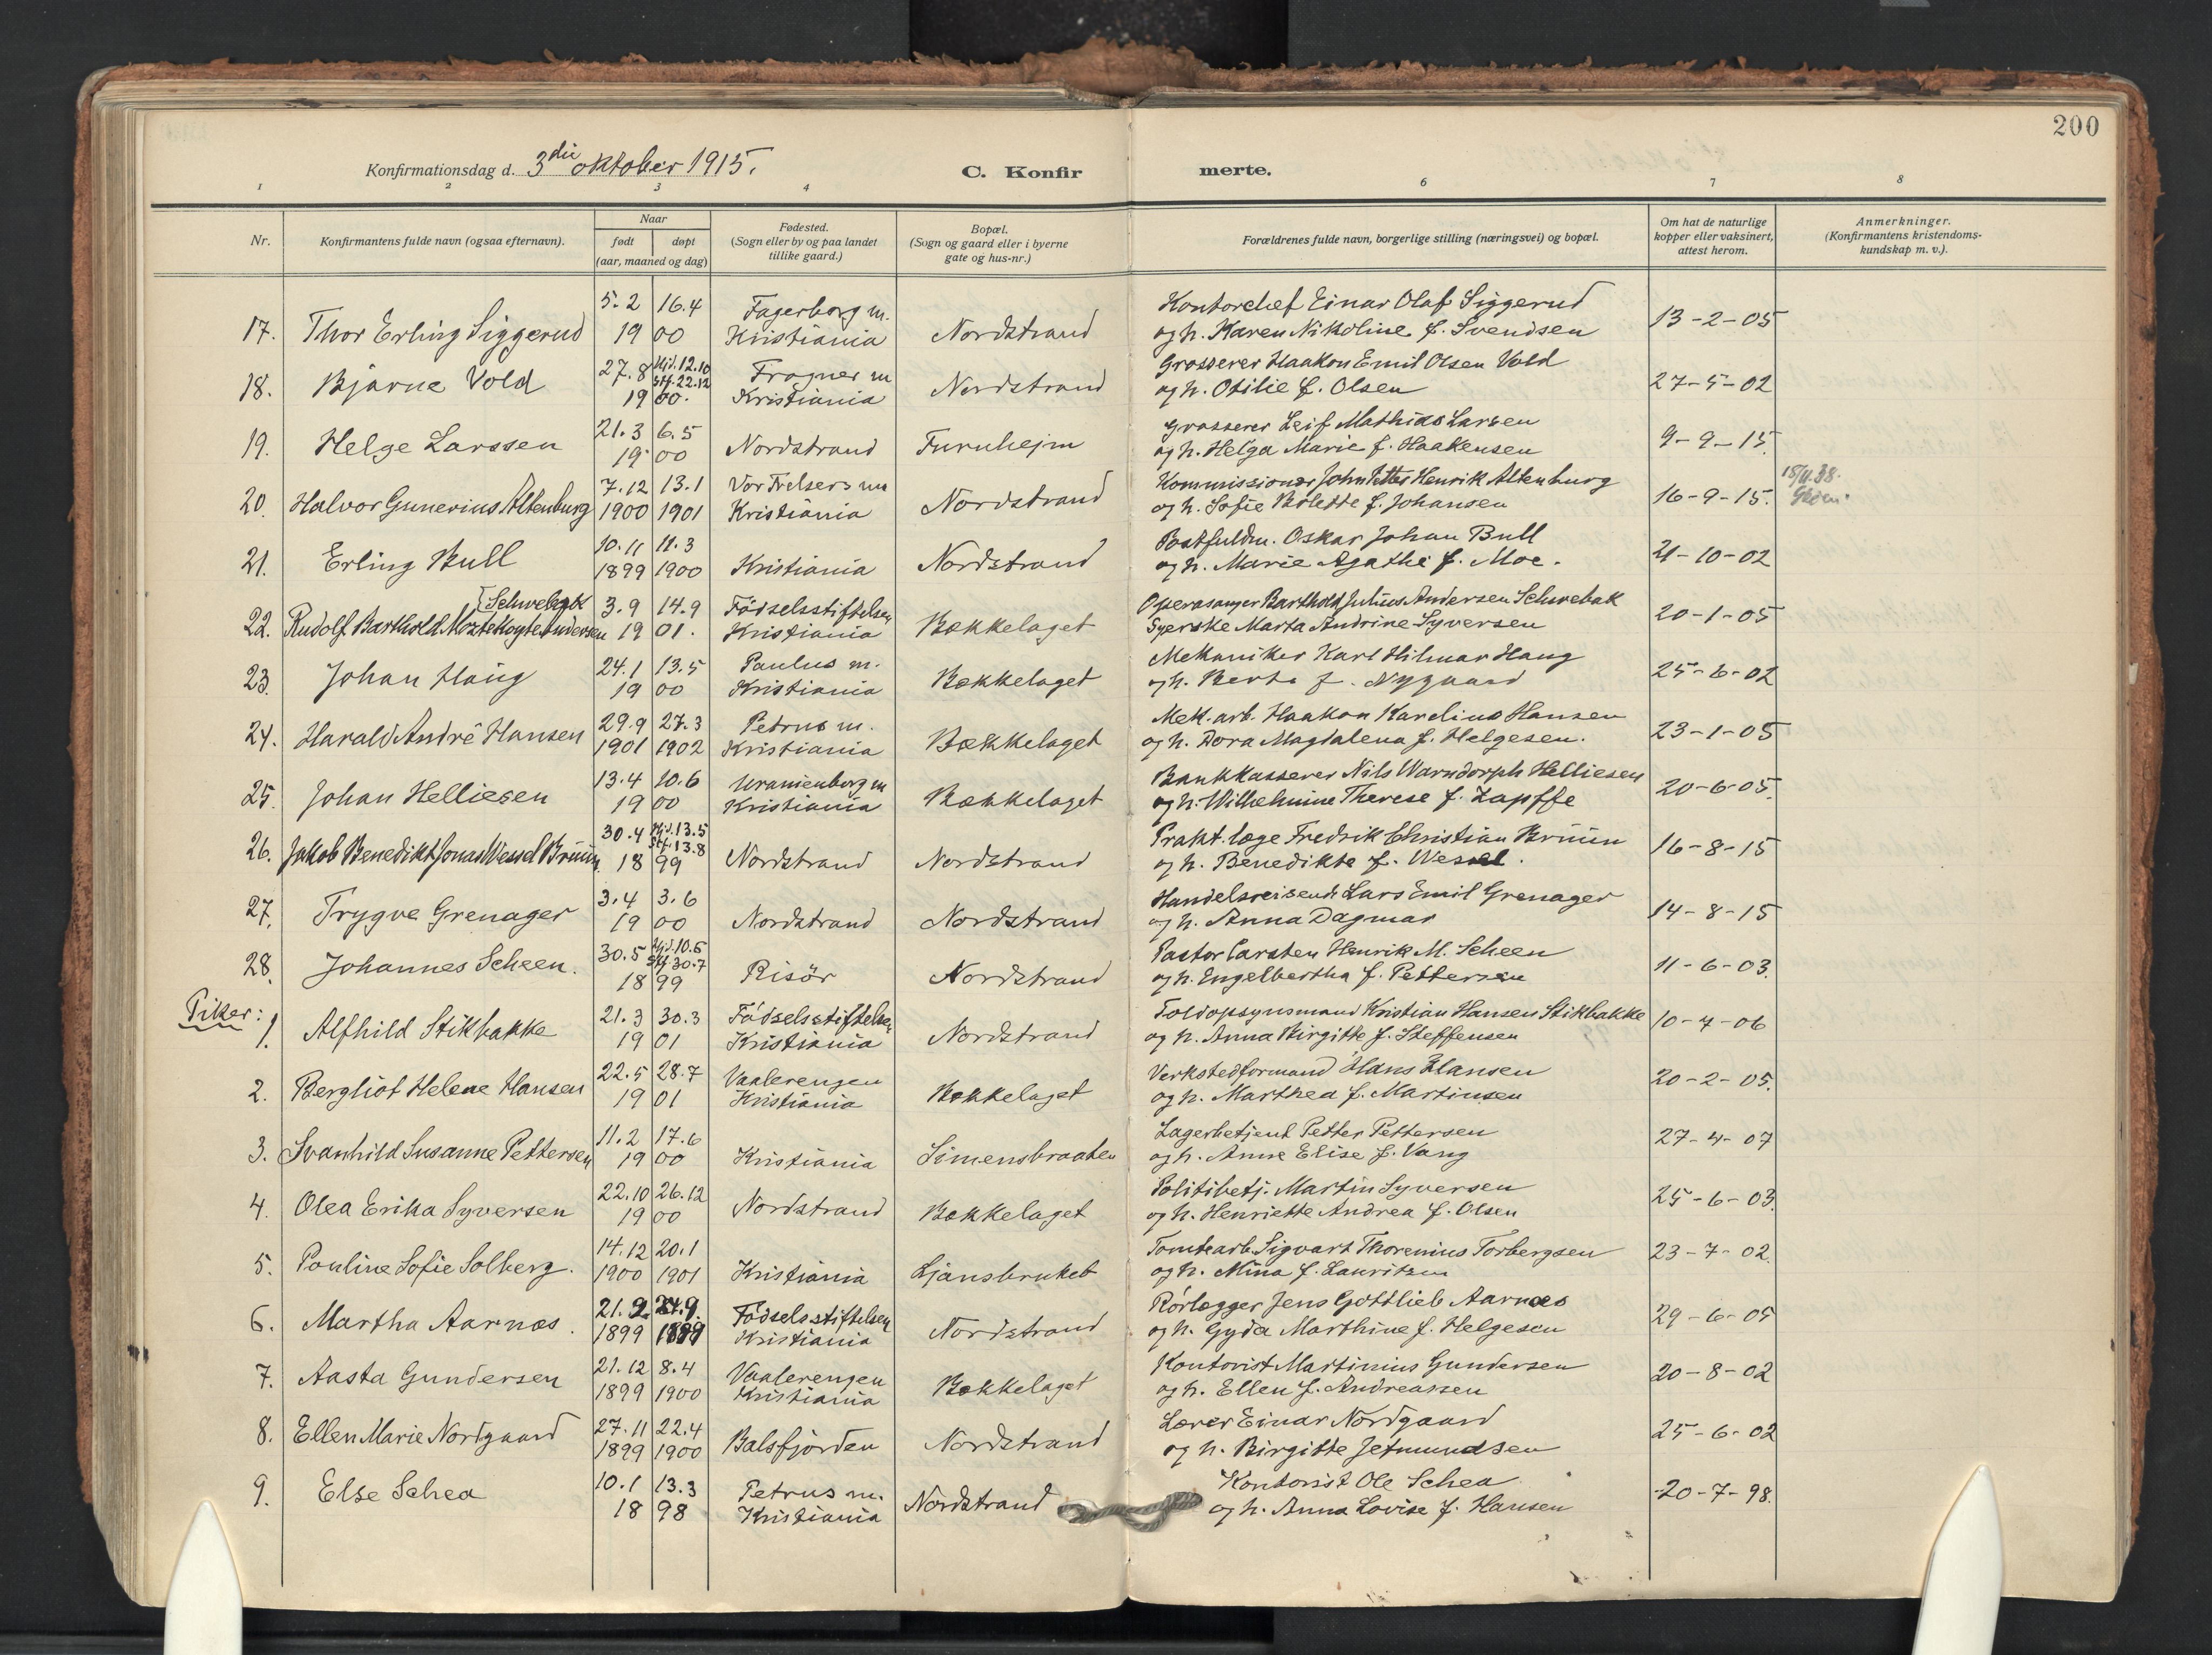 200
Konfirmationsdag d. 3die oktober 1915.
C. Konfirmerte.
1 2 3 4 6 7 8
Nr.
Konfirmantens fulde navn (ogsaa efternavn).
Naar
født døpt
(aar, maaned og dag)
Fødested.
(Sogn eller by og paa landet
tillike gaard.)
Bopæl.
(Sogn og gaard eller i byerne
gate og hus-nr.)
Forældrenes fulde navn, borgerlige stilling (næringsvei) og bopæl.
Om hat de naturlige
kopper eller vaksinert,
attest herom.
Anmerkninger.
(Konfirmantens kristendoms-
kundskap m. v.).
5.2 16.4 Fagerborg m. Kontorchef Einar Olaf Siggerud
17. Thor Erling Siggerud 19 00 Kristiania Nordstrand og h. Karen Nikoline f. Svendsen 13-2-05
27.8 Hjd. 12.10 Stf. 22.12 Frogner m Grosserer Haakon Emil Olsen Vold
18. Bjarne Vold 19 00. Kristiania Nordstrand og h. Otilie f. Olsen 27-5-02
21.3 6.5 grosserer Leif Mathias Larsen
19. Helge Larssen 19 00 Nordstrand Furuhejm og h. Helga Marie f. Haakensen 9-9-15
7.12 13.1 Vor Frelsers m Kommissionær John Petter Henrik Altenburg 15/11.38.
20. Halvor Gunerius Altenburg 1900 1901 Kristiania Nordstrand og h. Sofie Bolette f. Johansen 16-9-15.
10.11 11.3 Postfuldm. Oskar Johan Bull
21. Erling Bull 1899 1900 Kristiania Nordstrand og h. Marie Agathe f. Moe. 21-10-02
[Schwebak 3.9 14.9 Födselsstiftelsen Operasanger Barthold Julius Andersen Schwebak
22. Rudolf Barthold Andersen 19 01. Kristiania Bækkelaget Syerske Marta Andrine Syversen 20-1-05
24.1 13.5 Paulus m. Mekaniker Karl Hilmar Haug
23. Johan Haug 19 00 Kristiania Bækkelaget og h. Berta f. Nygaard 25-6-02
29.9 27.3 Petrus m. Mek. arb. Haakon Karelius Hansen
24. Harald André Hansen 1901 1902 Kristiania Bækkelaget og h. Dora Magdalena f. Helgesen. 23-1-05
13.4 10.6 Uranienborg m Bankkasserer Nils Warndorph Helliesen
25. Johan Helliesen 19 00 Kristiania Bækkelaget og h. Wilhelmine Therese f. Zapffe 20-6-05.
30.4 Hjd. 13.5 Stf. 13.8 Prakt. læge Fredrik Christian Brüün
26. Jakob Benedikt Jonas Wessel Brüün 18 99 Nordstrand Nordstrand og h. Benedikte f. Wessel. 16-8-15
3.4 3.6 Handelsreisende Lars Emil Grenager
27. Trygve Grenager 19 00 Nordstrand Nordstrand og h. Anna Dagmar 14-8-15
30.5 Hjd. 10.6 Stf 30.7 Pastor Carsten Henrik M. Scheen
28. Johannes Scheen. 18 99 Risör Nordstrand og h. Engelbertha f. Pettersen 11-6-03.
Piker:
21.3 30.3 Födselsstiftelsen Toldopsynsmand Kristian Hansen Stikbakke
1. Alfhild Stikbakke 19 01 Kristiania Nordstrand og h. Anna Birgitte f. Steffensen 10-4-06
22.5 28.7 Vaalerengen Verkstedformand Hans Hansen
2. Bergliot Helene Hansen 19 01 Kristiania Bækkelaget og h. Marthea f. Martinsen 20-2-05.
11.2 17.6 Lagerbetjent Petter Pettersen
3. Svanhild Susanne Pettersen 19 00 Kristiania Simensbraaten og h. Anne Elise f. Vang 27-4-07
22.10 26.12 Politibetj. Martin Syversen
4. Olea Erika Syversen 19 00 Nordstrand Bækkelaget og h. Henriette Andrea f. Olsen 25-6-03.
14.12 20.1 Tomtearb. Sigvart Thorenius Torbergsen
5. Pouline Sofie Solberg. 1900 1901 Kristiania Ljansbruket og h. Mina f. Lauritzen 23-7-02.
21.2 24.9. Födselsstiftelsen Rörlægger Jens Gottlieb Aarnæs
6. Martha Aarnæs. 1899 1899 Kristiania Nordstrand og h. Gyda Marthine f. Helgesen 29-6-05
21.12 8.4 Vaalerengen Kontorist Martinius Gundersen
7. Aasta Gundersen 1899 1900 Kristiania Bækkelaget og h. Ellen f. Andreassen 20-8-02
27.11 22.4 Lærer Einar Nordgaard
8. Ellen Marie Nordgaard 1899 1900 Balsfjorden Nordstrand og h. Birgitte Jetmundsen 25-6-02
10.1 13.3 Petrus m. Kontorist Ole Schea
9. Else Schea 18 98 Kristiania Nordstrand og h. Anna Lovise f. Hansen 20-7-98.